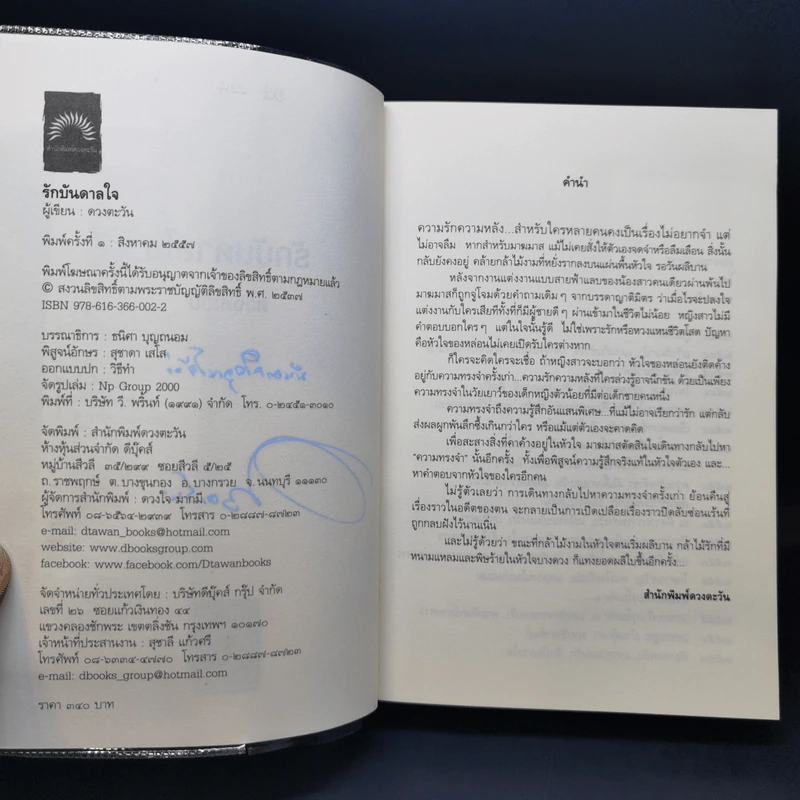 สำนักพิมพ์ดวงตะวัน
รักบันดาลใจ
ผู้เขียน : ดวงตะวัน
พิมพ์ครั้งที่ ๑ : สิงหาคม ๒๕๕๗
พิมพ์โฆษณาครั้งนี้ได้รับอนุญาตจากเจ้าของลิขสิทธิ์ตามกฎหมายแล้ว
© สงวนลิขสิทธิ์ตามพระราชบัญญัติลิขสิทธิ์ พ.ศ. ๒๕๓๗
ISBN 978-616-366-002-2
บรรณาธิการ : ธนิศา บุญถนอม
พิสูจน์อักษร : สุชาดา เสโส
ออกแบบปก : วิธีทำ
จัดรูปเล่ม : Np Group 2000
พิมพ์ที่ : บริษัท วี. พริ้นท์ (๑๙๙๑) จำกัด โทร. ๐-๒๔๕๑-๓๐๑๐
จัดพิมพ์ : สำนักพิมพ์ดวงตะวัน
ห้างหุ้นส่วนจำกัด ดีบุ๊คส์
หมู่บ้านสีวลี ๓๕/๒๙๙ ซอยสีวลี ๕/๒๕
ถ.ราชพฤกษ์ ต.บางขุนกอง อ.บางกรวย จ.นนทบุรี ๑๑๑๓๐
ผู้จัดการสำนักพิมพ์ : ดวงใจ มากมี
โทรศัพท์ ๐๘-๖๕๖๔-๒๙๓๙ โทรสาร ๐-๒๘๘๗-๘๗๒๓
e-mail: dtawan_books@hotmail.com
website: www.dbooksgroup.com
facebook: www.facebook.com/Dtawanbooks
จัดจำหน่ายทั่วประเทศโดย : บริษัทดีบุ๊คส์ กรุ๊ป จำกัด
เลขที่ ๒๖ ซอยแก้วเงินทอง ๔๔
แขวงคลองชักพระ เขตตลิ่งชัน กรุงเทพฯ ๑๐๑๗๐
เจ้าหน้าที่ประสานงาน : สุชาลี แก้วศรี
โทรศัพท์ ๐๘-๖๓๓๔-๔๗๗๐ โทรสาร ๐-๒๘๘๗-๘๗๒๓
e-mail: dbooks_group@hotmail.com
ราคา ๓๔๐ บาท
คำนำ
ความรักความหลัง...สำหรับใครหลายคนคงเป็นเรื่องไม่อยากจำ แต่
ไม่อาจลืม หากสำหรับมาฆมาส แม้ไม่เคยสั่งให้ตัวเองจดจำหรือลืมเลือน สิ่งนั้น
กลับยังคงอยู่ คล้ายกล้าไม้งามที่หยั่งรากลงบนแผ่นพื้นหัวใจ รอวันผลิบาน
หลังจากงานแต่งงานแบบสายฟ้าแลบของน้องสาวคนเดียวผ่านพ้นไป
มาฆมาสก็ถูกจู่โจมด้วยคำถามเดิมๆ จากบรรดาญาติมิตร ว่าเมื่อไรจะปลงใจ
แต่งงานกับใครเสียทีทั้งที่ก็มีผู้ชายดีๆ ผ่านเข้ามาในชีวิตไม่น้อย หญิงสาวไม่มี
คำตอบบอกใครๆ แต่ในใจนั้นรู้ดี ไม่ใช่เพราะรักหรือหวงแหนชีวิตโสด ปัญหา
คือหัวใจของหล่อนไม่เคยเปิดรับใครต่างหาก
ก็ใครจะคิดใครจะเชื่อ ถ้าหญิงสาวจะบอกว่า หัวใจของหล่อนยังติดค้าง
อยู่กับความทรงจำครั้งเก่า...ความรักความหลังที่ใครล่วงรู้อาจนึกขัน ด้วยเป็นเพียง
ความทรงจำในวัยเยาว์ของเด็กหญิงตัวน้อยที่มีต่อเด็กชายคนหนึ่ง
ความทรงจำถึงความรู้สึกอันแสนพิเศษ...ที่แม้ไม่อาจเรียกว่ารัก แต่กลับ
ส่งผลผูกพันลึกซึ้งเกินกว่าใคร หรือแม้แต่ตัวเองจะคาดคิด
เพื่อสะสางสิ่งที่คาค้างอยู่ในหัวใจ มาฆมาสตัดสินใจเดินทางกลับไปหา
"ความทรงจำ" นั้นอีกครั้ง ทั้งเพื่อพิสูจน์ความรู้สึกจริงแท้ในหัวใจตัวเอง และ...
หาคำตอบจากหัวใจของใครอีกคน
ไม่รู้ตัวเลยว่า การเดินทางกลับไปหาความทรงจำครั้งเก่า ย้อนคืนสู่
เรื่องราวในอดีตของตน จะกลายเป็นการเปิดเปลือยเรื่องราวปิดลับซ่อนเร้นที่
ถูกกลบฝังไว้นานเนิ่น
และไม่รู้ด้วยว่า ขณะที่กล้าไม้งามในหัวใจตนเริ่มผลิบาน กล้าไม้รักที่มี
หนามแหลมและพิษร้ายในหัวใจบางดวง ก็แทงยอดผลิใบขึ้นอีกครั้ง...
สำนักพิมพ์ดวงตะวัน